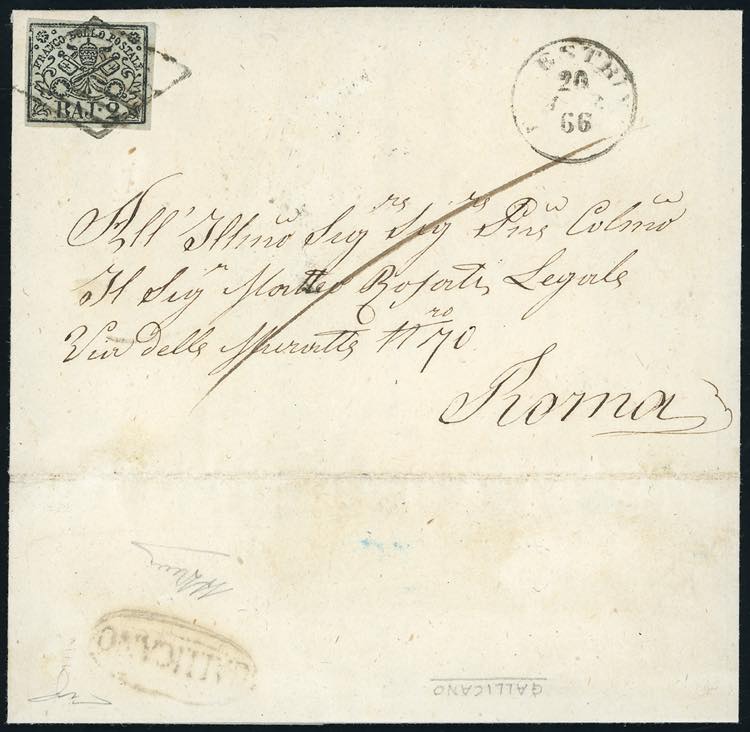 FRANCO BOLLO POSTALE
BAJ. 2
ESTRI
20
66
All' Illmo Sigre Sigre Pne Colmo
Il Sigr Matteo Rosati Legale
Via delle Muratte Nro 70
Roma
GALLICANO
GALLICANO